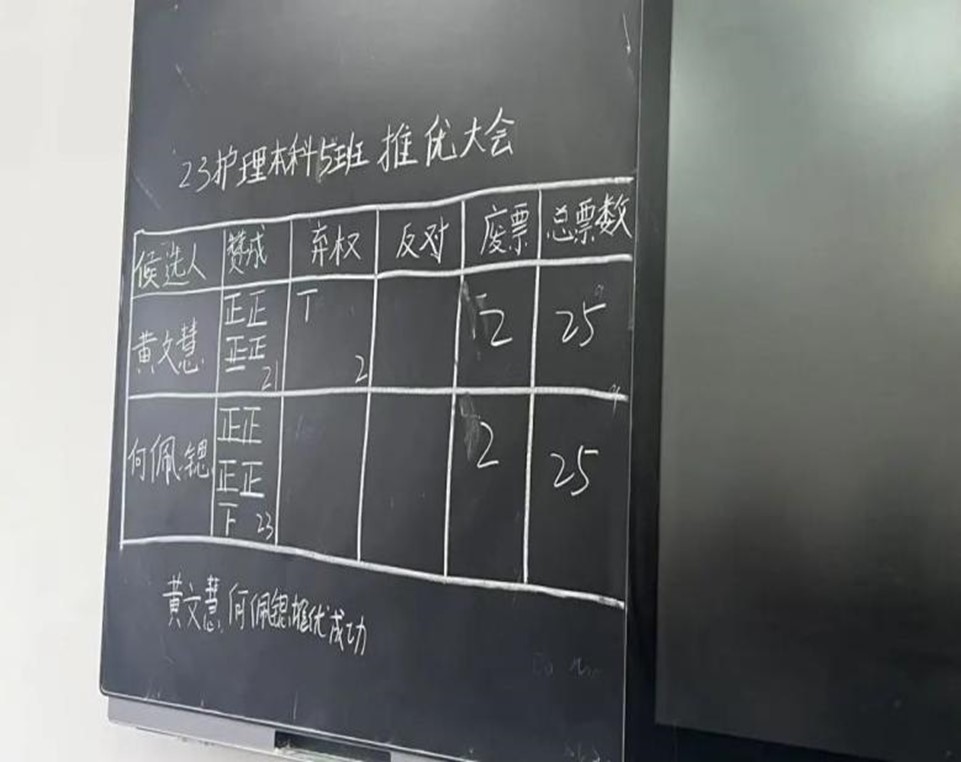 23护理本科5班 推优大会
候选人 赞成 弃权 反对 废票 总票数
黄文慧 正正 正正 21 丅 2 2 25
何佩锶 正正 正正 下 23 2 25
黄文慧 何佩锶推优成功